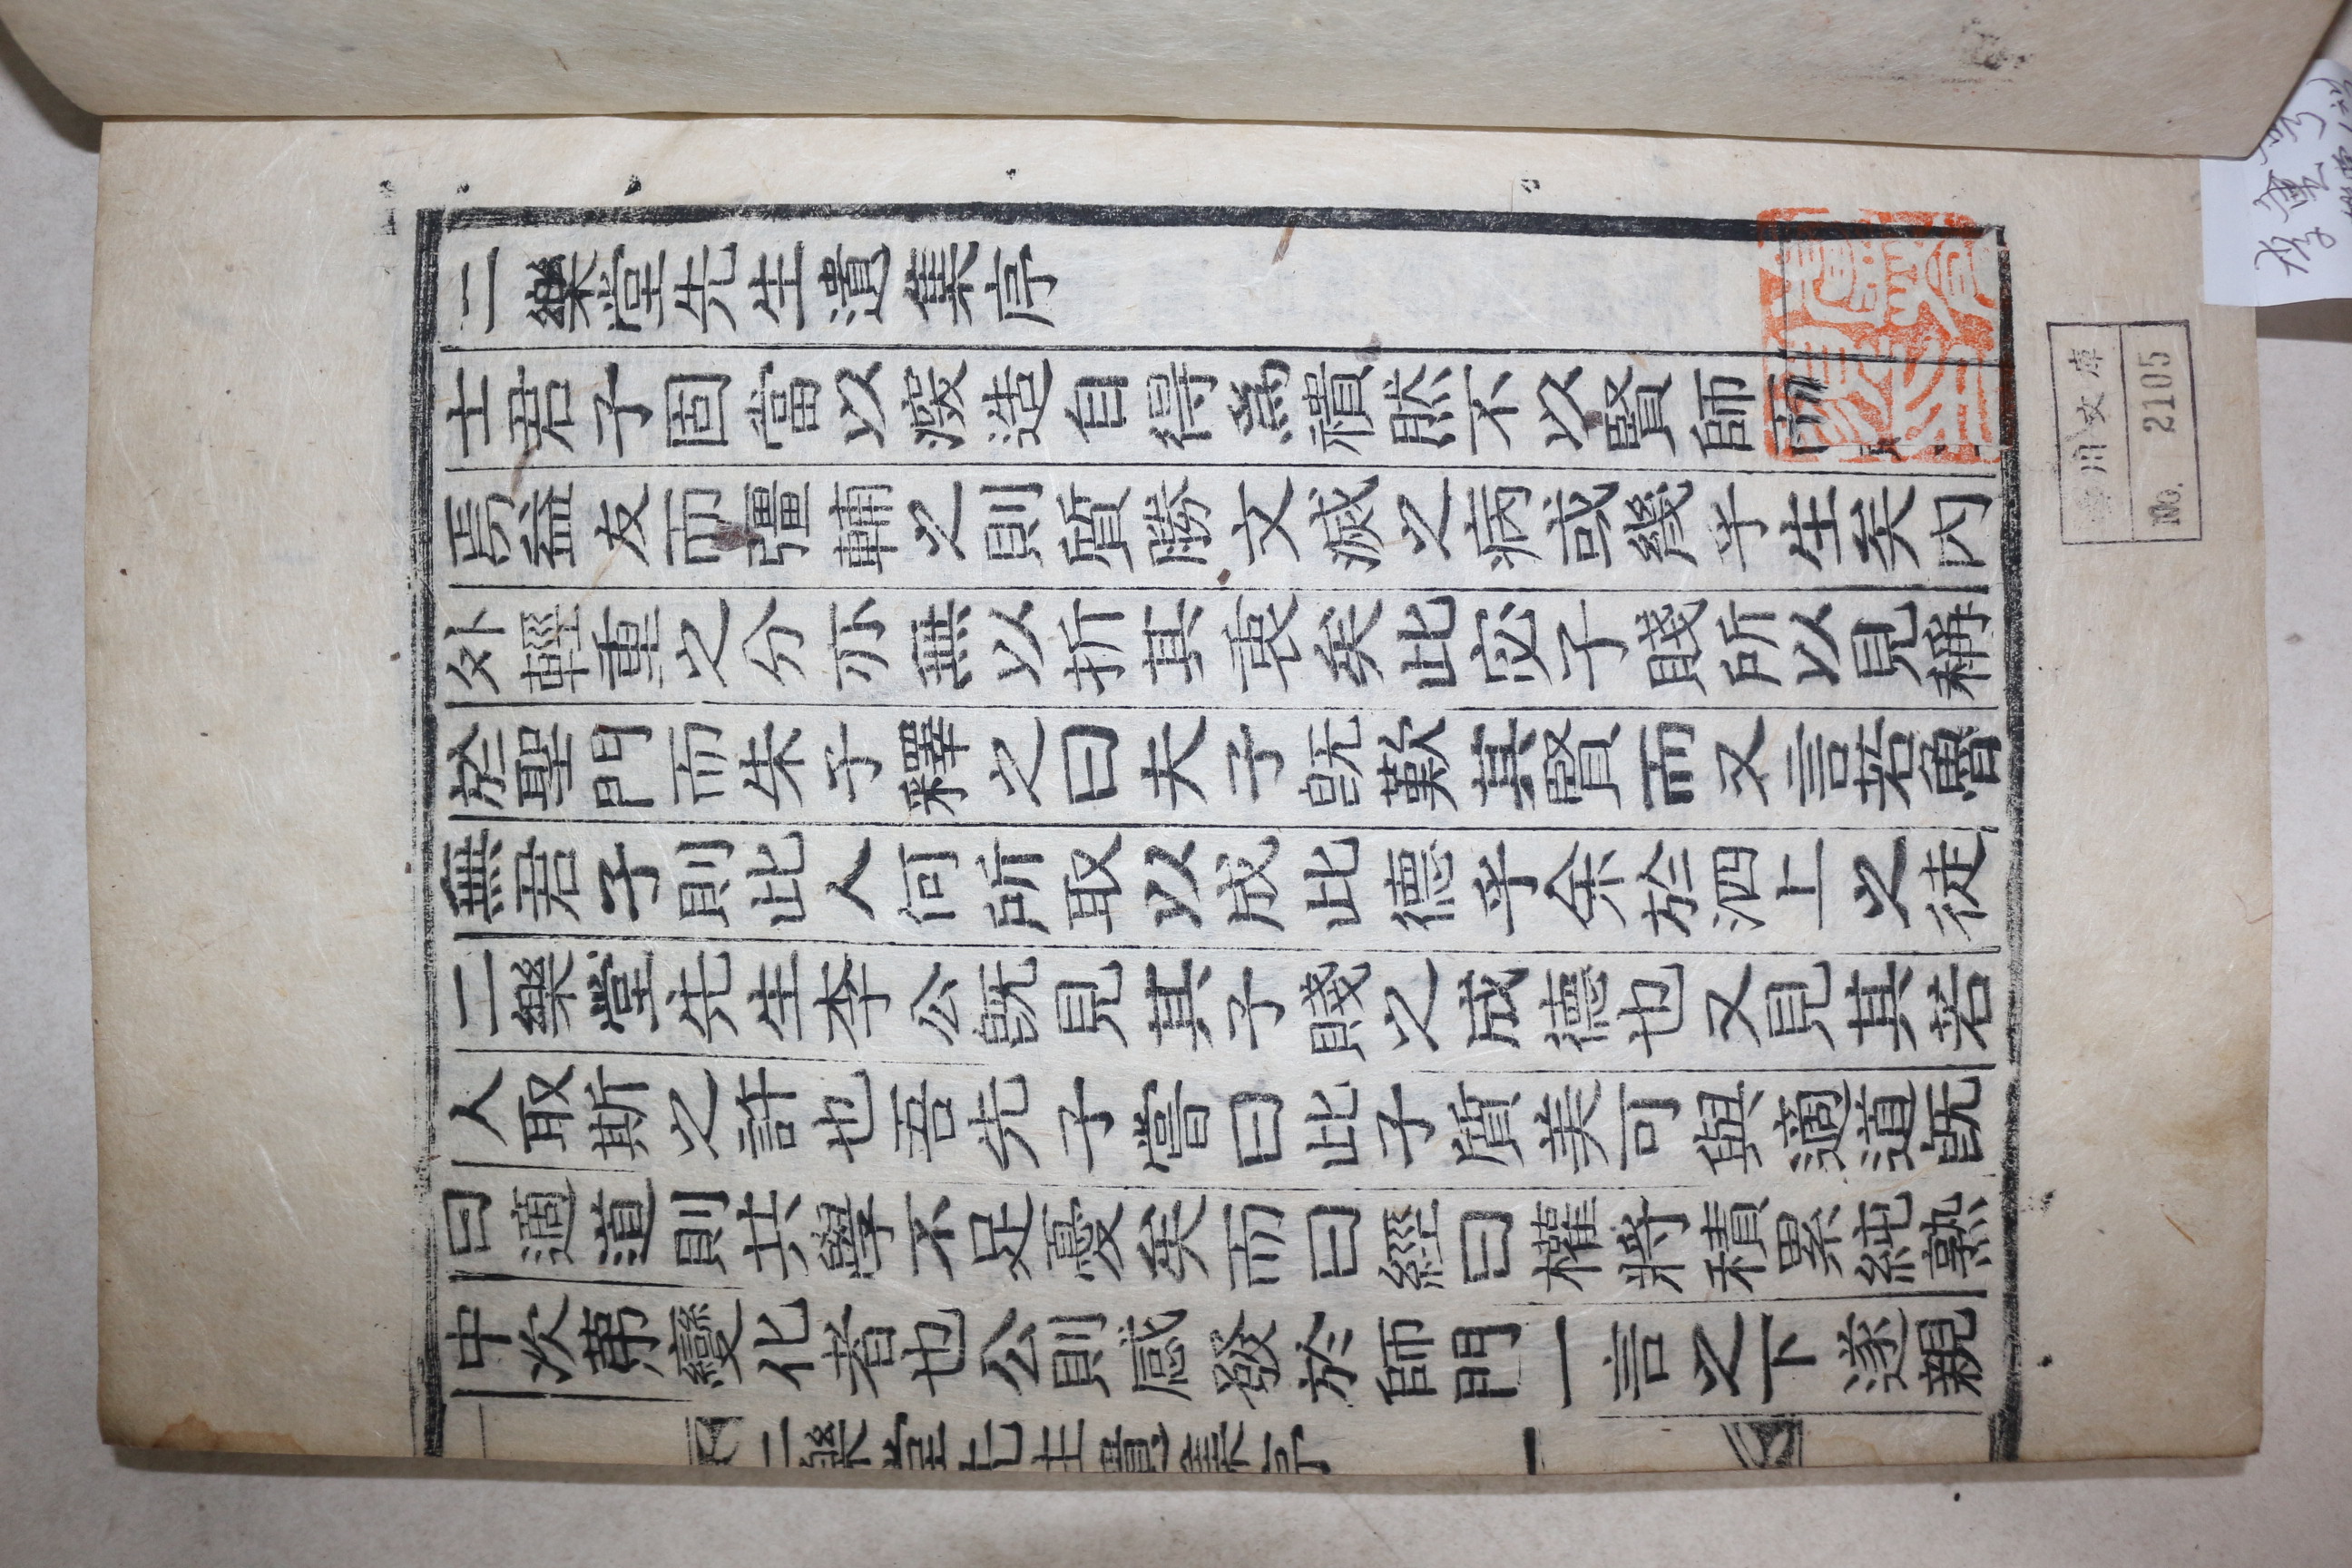 二樂堂先生遺集序
士君子固當以深造自得爲積然不以賢師
焉益友而彊輔之則質勝文滅之病或幾乎生矣內
外輕重之分亦無以折其衷矣此宓子賤所以見稱
於聖門而朱子釋之曰夫子旣歎其賢而又言若魯
無君子則此人何所取以成此德乎余於泗上之徒
二樂堂先生李公旣見其子賤之成德也又見其若
人取斯之許也吾先子嘗曰此子質美可與適道旣
曰適道則共學不足憂矣而曰經曰權將積累純熟
中次第變化者也公則感發於師門一言之下遂親
二樂堂先生遺集序 一
文庫
No. 21105